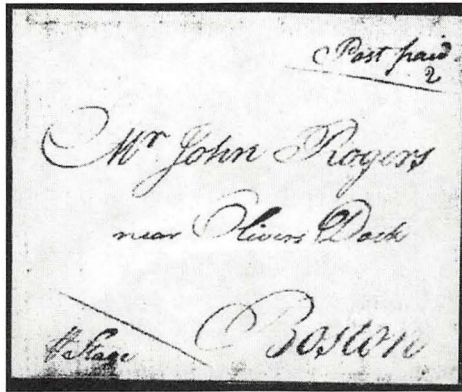 Post paid
2
Mr John Rogers
near Olivers Dock
Boston
℔ Stage